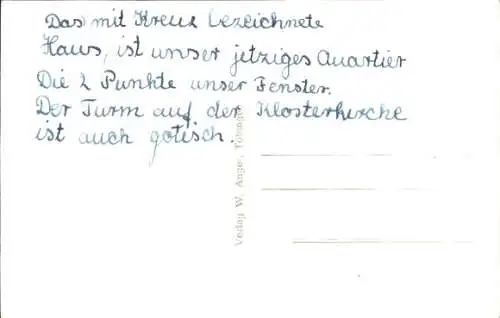 Das mit Kreuz bezeichnete
Haus, ist unser jetziges Quartier
Die 2 Punkte unser Fenster.
Der Turm auf der Klosterkirche
ist auch gotisch.
Verlag W. Anger,